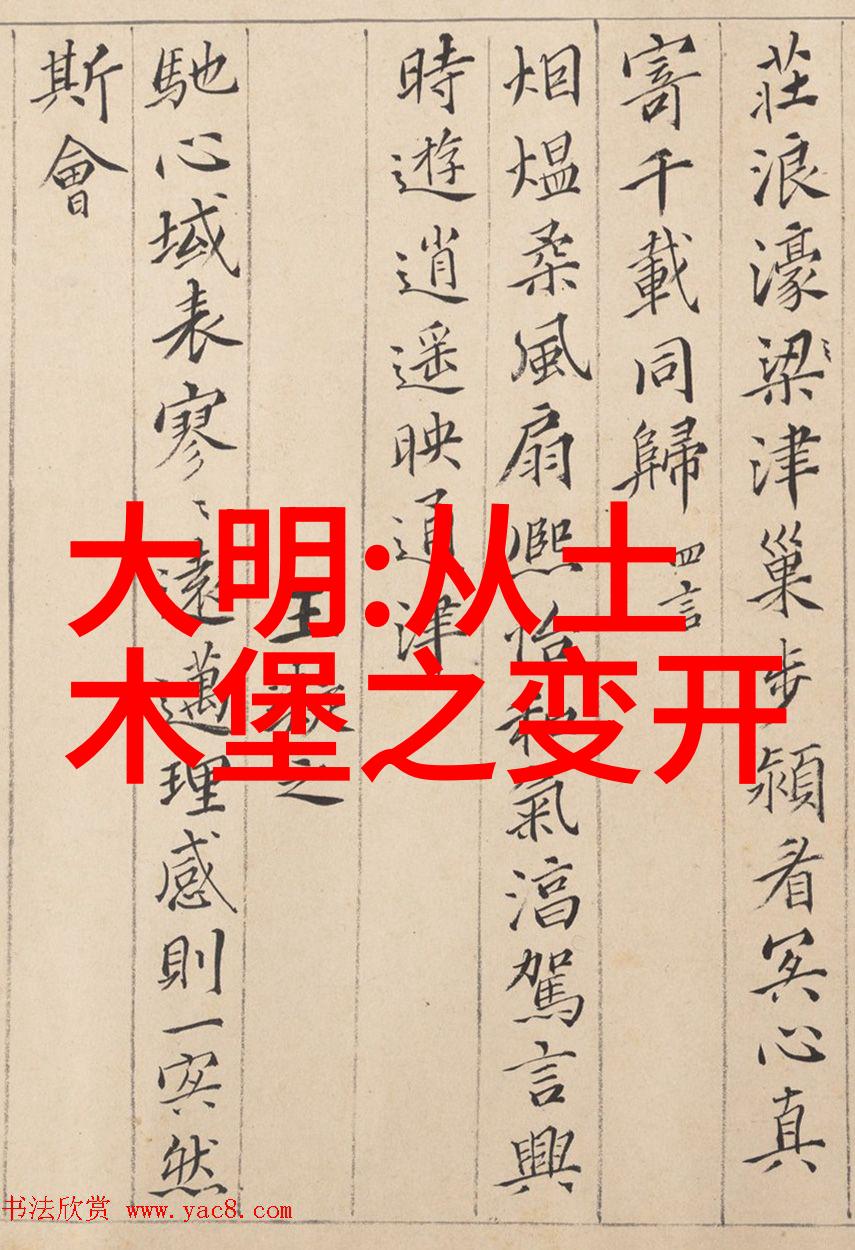 莊浪濠梁津巢步潁眉冥心真
寄千載同歸 四言
烟熅柔風扇熙怡和氣淳駕言興
時遊逍遥映通津
王之
馳心域表寥〻遠邁理感則一冥然
斯會
大明:从土
木堡之变开
书法欣赏 www.yac8.com